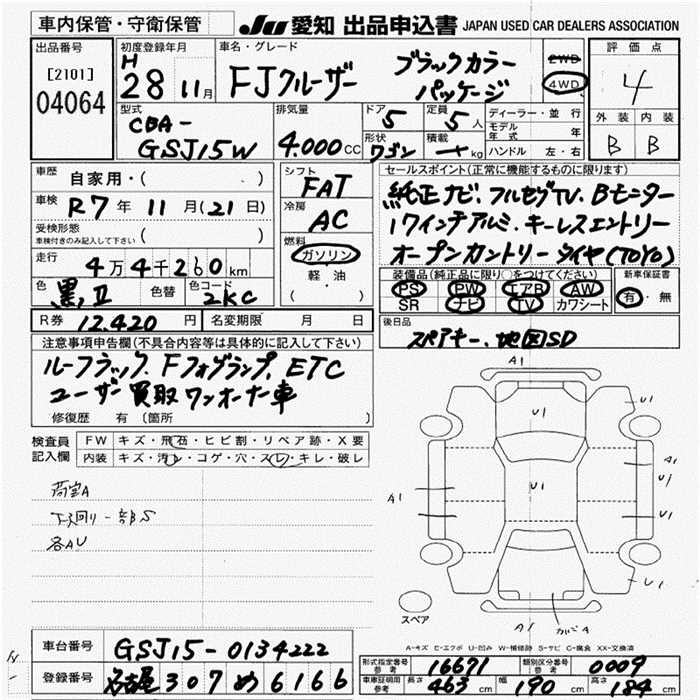 車内保管・守衛保管
JU 愛知 出品申込書 JAPAN USED CAR DEALERS ASSOCIATION
出品番号
[2101]
04064
初度登録年月
H 28 11月
車名・グレード
FJクルーザー ブラックカラー パッケージ
2WD
4WD
評価点
4
外装 内装
B B
型式
CBA-
GSJ15W
排気量
4.000cc
ドア 5
定員 5人
形状 ワゴン
積載 kg
ディーラー・並行
モデル年式 年
ハンドル 左・右
車歴 自家用・( )
車検 R7年 11月(21日)
受検形態
車検付きのみ記入して下さい ( )
走行 4万4千260km
色 黒
色替
色コード 2KC
R券 12.420円
名変期限 月 日
シフト FAT
冷房 AC
燃料
ガソリン
軽・油
( )
セールスポイント(正常に機能するものに限ります)
純正ナビ、フルセグTV、Bモニター
17インチアルミ、キーレスエントリー
オープンカントリータイヤ(TOYO)
装備品(純正品に限り○をつけてください)
PS PW エアB AW
SR ナビ TV カワシート
新車保証書
有・無
後日品
スペアキー、地図SD
注意事項申告欄(不具合内容等は具体的に記入して下さい)
ルーフラック、Fフォグランプ、ETC
ユーザー買取 ワンオーナー車
修復歴 有 (箇所 )
検査員記入欄
FW キズ・飛石・ヒビ割・リペア跡・X要
内装 キズ・汚レ・コゲ・穴・スレ・キレ・破レ
荷室A
下廻り一部S
各AU
A1
U1
U1
A1
U1
A1
U1
U1
U1
A1
スペア
A-キズ E-エクボ U-凹み W-補修跡 S-サビ C-腐食 XX-交換済
車台番号 GSJ15-0134222
登録番号 名古屋 307 め 6166
形式指定番号参考 16671
類別区分番号参考 0009
車庫証明用参考 長さ 463cm 幅 190cm 高さ 184cm